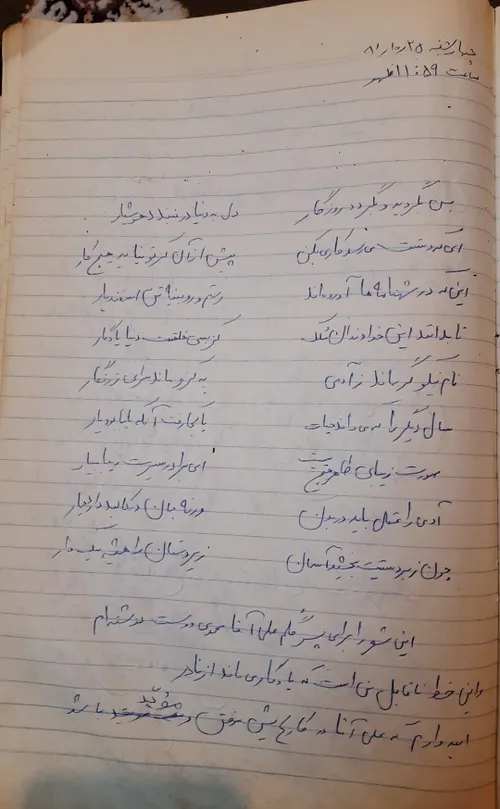 چهارشنبه ۲۵ خرداد ۸۱
ساعت ۱۱:۵۹ ظهر
بس بگردید و بگردد روزگار دل به دنیا در نبندد هوشیار
ای که دستت می‌رسد کاری بکن پیش از آن کز تو نیاید هیچ کار
اینکه در شهنامه‌ها آورده‌اند رستم و رویینه تن اسفندیار
تا بدانند این خداوندان ملک کز بسی خلقت دنیا یادگار
نام نیکو گر بماند ز آدمی به کزو ماند سرای زرنگار
سال دیگر را که می‌داند حیات یا کجا رفت آنکه با ما بود یار
صورت زیبای ظاهر هیچ نیست ای برادر سیرت زیبا بیار
آدمی را عقل باید در بدن ورنه جان در کالبد دارد حمار
چون زبردستیت بخشید آسمان زیردستان را همیشه نیک دار
این شعر را برای پسر گلم علی آقا دوست نوشته‌ام
و این خط ناقابل من است که یادگاری ماند از نادر
امیدوارم که علی آقا در کارهایش موفق و مؤید باشد